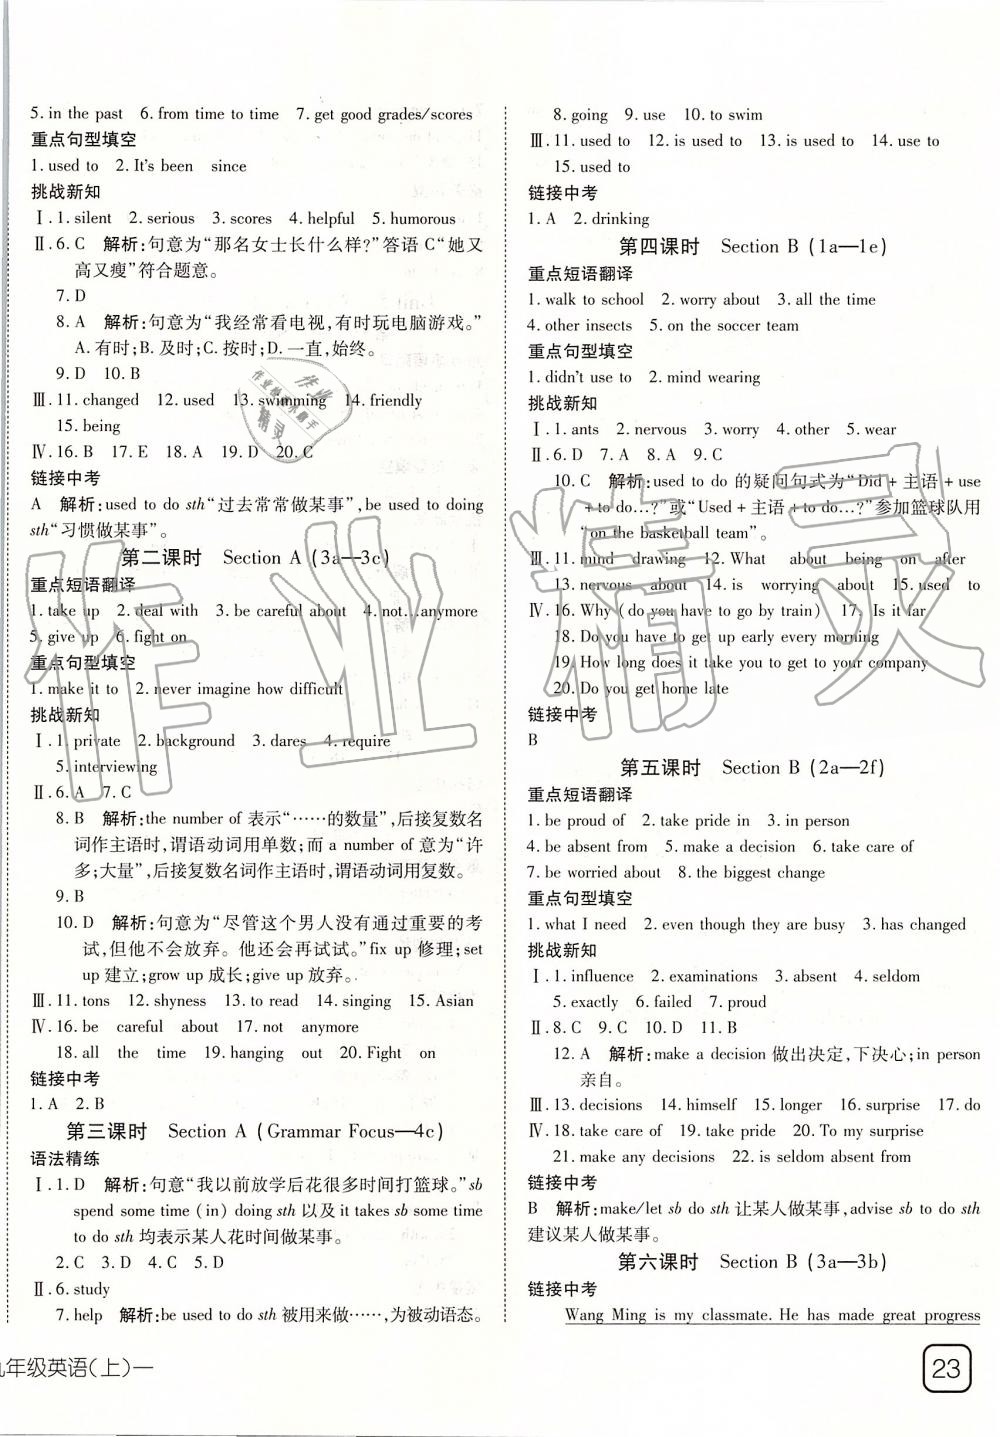 5. in the past 6. from time to time 7. get good grades/scores
重点句型填空
1. used to 2. It's been since
挑战新知
Ⅰ. 1. silent 2. serious 3. scores 4. helpful 5. humorous
Ⅱ. 6. C 解析:句意为“那名女士长什么样?”答语 C“她又
高又瘦”符合题意。
7. D
8. A 解析:句意为“我经常看电视,有时玩电脑游戏。”
A. 有时;B. 及时;C. 按时;D. 一直,始终。
9. D 10. B
Ⅲ. 11. changed 12. used 13. swimming 14. friendly
15. being
Ⅳ. 16. B 17. E 18. A 19. D 20. C
链接中考
A 解析:used to do sth“过去常常做某事”,be used to doing
sth“习惯做某事”。
第二课时 Section A (3a—3c)
重点短语翻译
1. take up 2. deal with 3. be careful about 4. not…anymore
5. give up 6. fight on
重点句型填空
1. make it to 2. never imagine how difficult
挑战新知
Ⅰ. 1. private 2. background 3. dares 4. require
5. interviewing
Ⅱ. 6. A 7. C
8. B 解析:the number of 表示“……的数量”,后接复数名
词作主语时,谓语动词用单数;而 a number of 意为“许
多;大量”,后接复数名词作主语时,谓语动词用复数。
9. B
10. D 解析:句意为“尽管这个男人没有通过重要的考
试,但他不会放弃。他还会再试试。”fix up 修理;set
up 建立;grow up 成长;give up 放弃。
Ⅲ. 11. tons 12. shyness 13. to read 14. singing 15. Asian
Ⅳ. 16. be careful about 17. not anymore
18. all the time 19. hanging out 20. Fight on
链接中考
1. A 2. B
第三课时 Section A (Grammar Focus—4c)
语法精练
Ⅰ. 1. D 解析:句意“我以前放学后花很多时间打篮球。”sb
spend some time (in) doing sth 以及 it takes sb some time
to do sth 均表示某人花时间做某事。
2. C 3. D 4. C 5. D
Ⅱ. 6. study
7. help 解析:be used to do sth 被用来做……,为被动语态。
8. going 9. use 10. to swim
Ⅲ. 11. used to 12. is used to 13. is used to 14. use to
15. used to
链接中考
1. A 2. drinking
第四课时 Section B (1a—1e)
重点短语翻译
1. walk to school 2. worry about 3. all the time
4. other insects 5. on the soccer team
重点句型填空
1. didn't use to 2. mind wearing
挑战新知
Ⅰ. 1. ants 2. nervous 3. worry 4. other 5. wear
Ⅱ. 6. D 7. A 8. A 9. C
10. C 解析:used to do 的疑问句式为“Did + 主语 + use
+ to do…?”或“Used + 主语 + to do…?”参加篮球队用
“on the basketball team”。
Ⅲ. 11. mind drawing 12. What about being on after
13. nervous about 14. is worrying about 15. used to
Ⅳ. 16. Why (do you have to go by train) 17. Is it far
18. Do you have to get up early every morning
19. How long does it take you to get to your company
20. Do you get home late
链接中考
B
第五课时 Section B (2a—2f)
重点短语翻译
1. be proud of 2. take pride in 3. in person
4. be absent from 5. make a decision 6. take care of
7. be worried about 8. the biggest change
重点句型填空
1. what I need 2. even though they are busy 3. has changed
挑战新知
Ⅰ. 1. influence 2. examinations 3. absent 4. seldom
5. exactly 6. failed 7. proud
Ⅱ. 8. C 9. C 10. D 11. B
12. A 解析:make a decision 做出决定,下决心;in person
亲自。
Ⅲ. 13. decisions 14. himself 15. longer 16. surprise 17. do
Ⅳ. 18. take care of 19. take pride 20. To my surprise
21. make any decisions 22. is seldom absent from
链接中考
B 解析:make/let sb do sth 让某人做某事,advise sb to do sth
建议某人做某事。
第六课时 Section B (3a—3b)
链接中考
Wang Ming is my classmate. He has made great progress
九年级英语(上)—
23
作业精灵